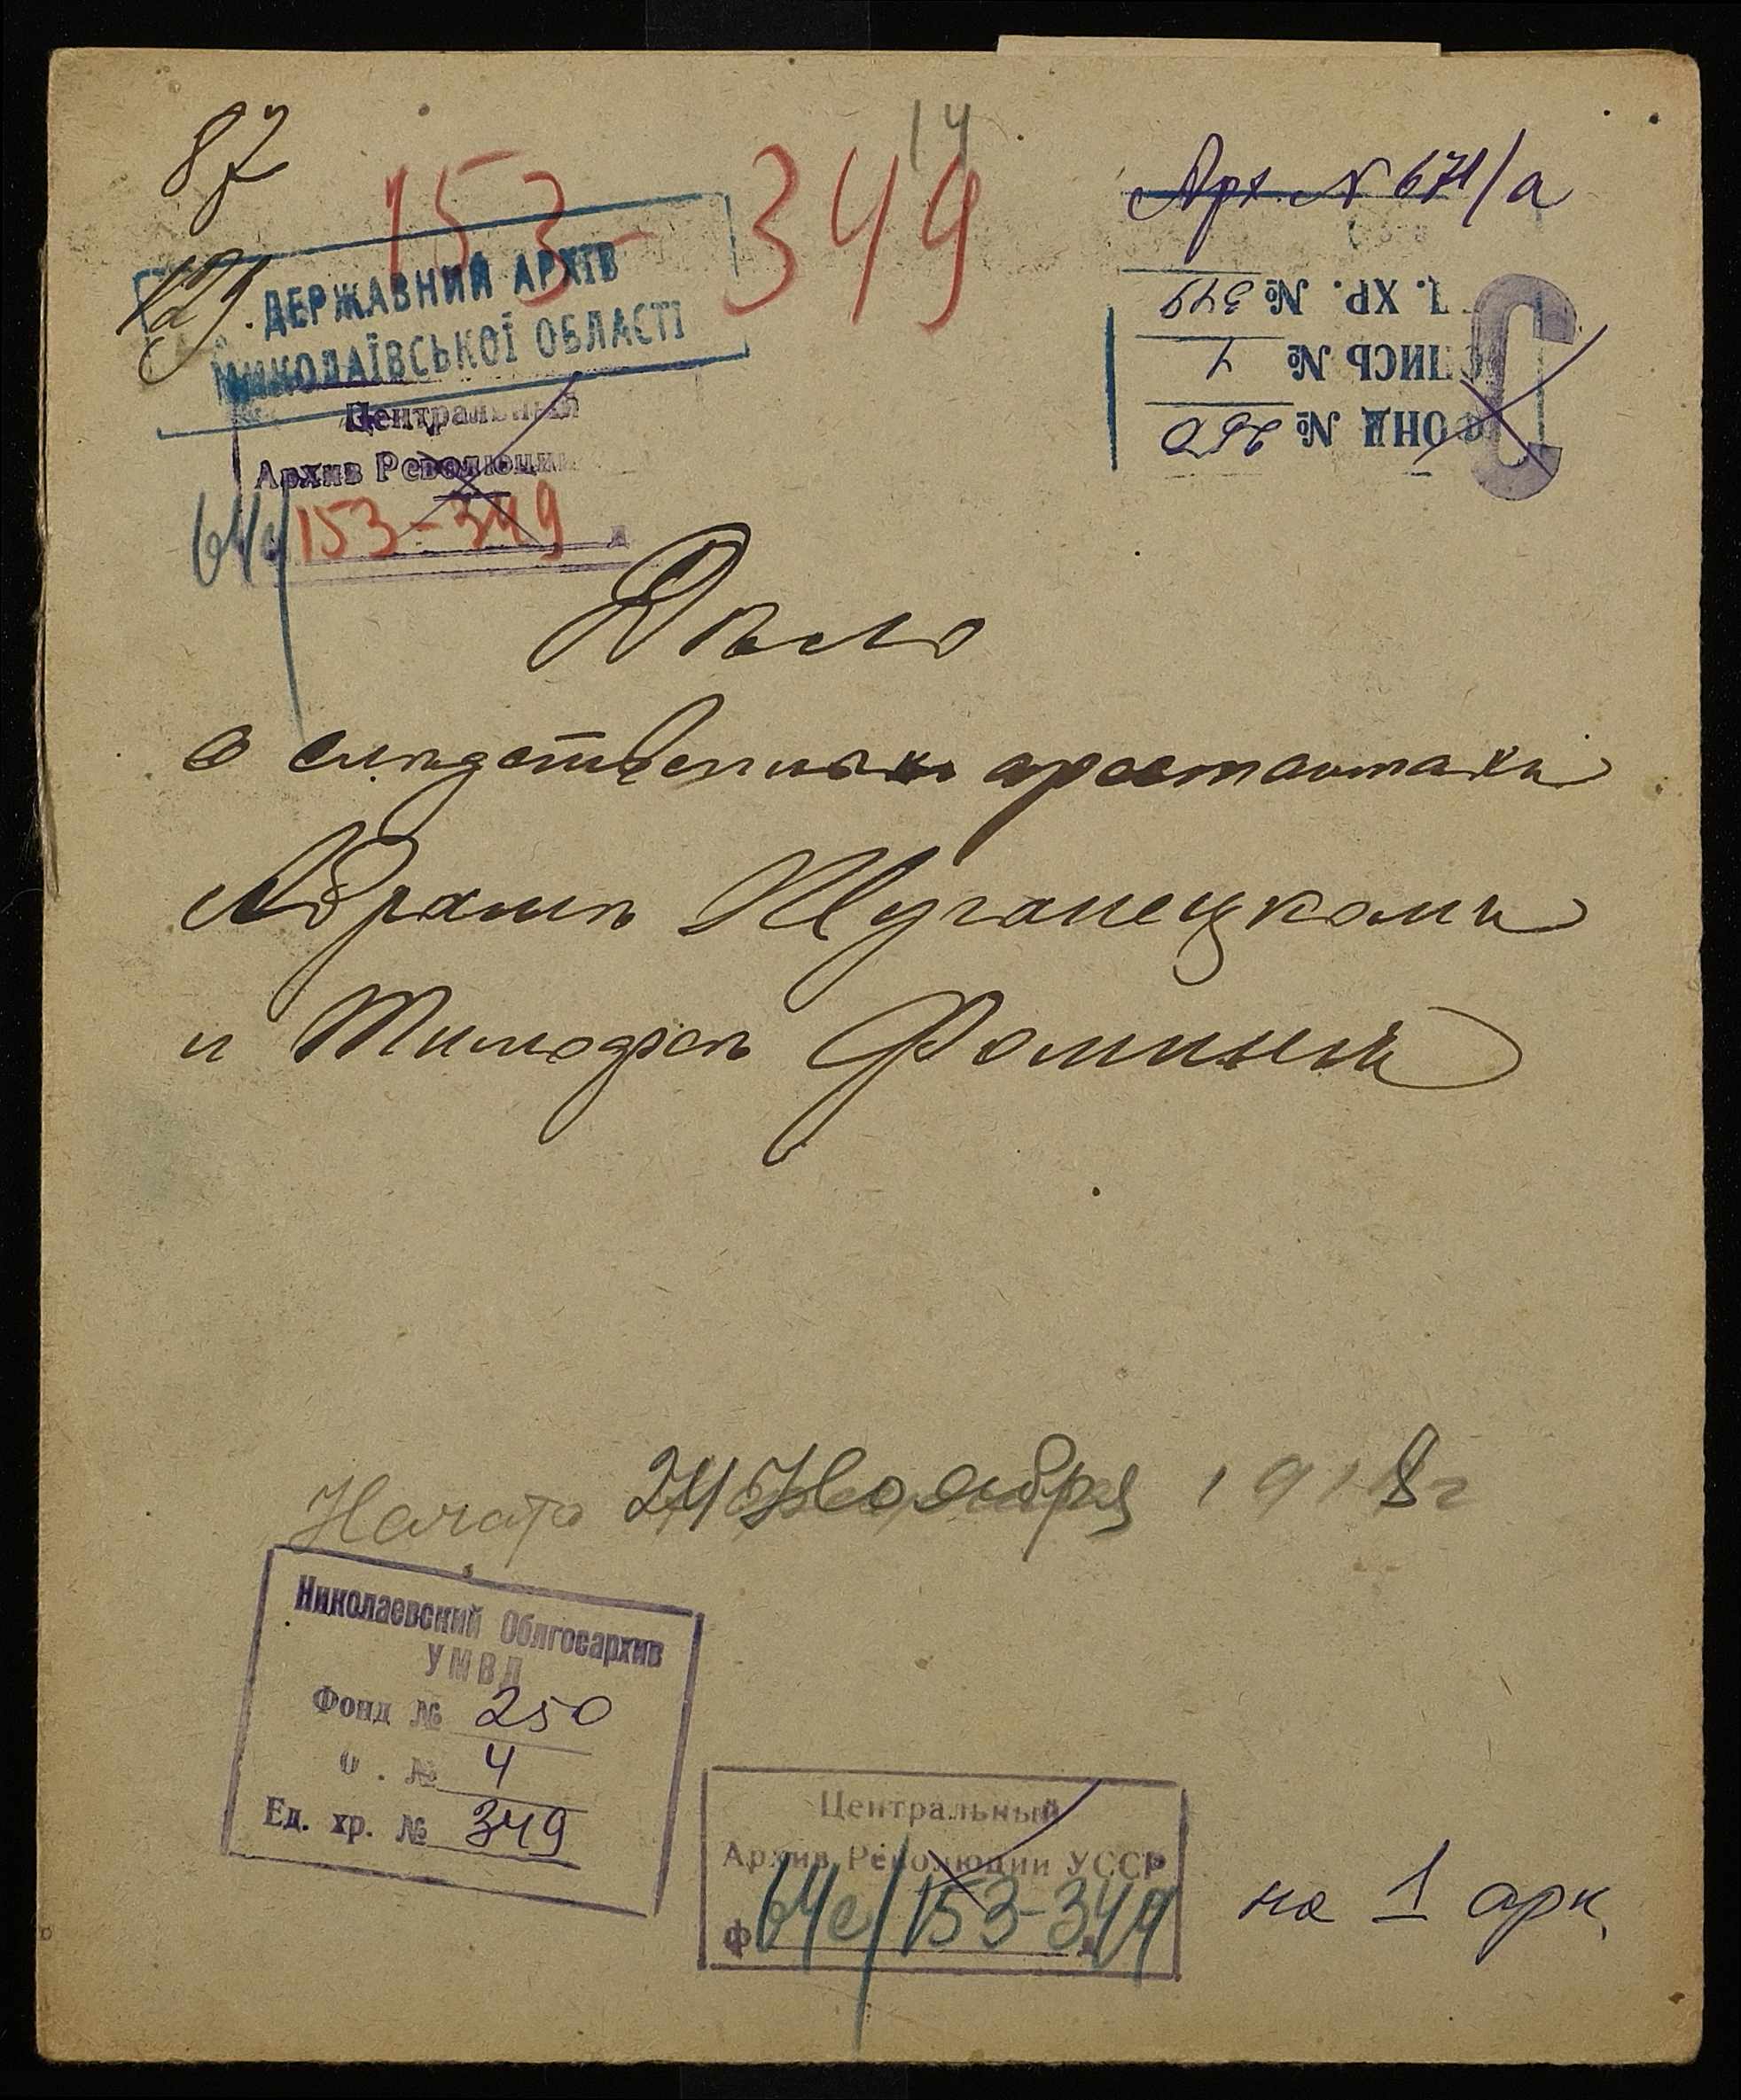 87
14
153-349
Арх. № 671/а
129.
ДЕРЖАВНИЙ АРХІВ
МИКОЛАЇВСЬКОЇ ОБЛАСТІ
ФОНД № 250
ОПИСЬ № 4
Д. ХР. № 349
Центральный
Архив Революции
153-349
Дѣло
о слѣдственныхъ арестантахъ
Абрамѣ Шуганецкомъ
и Тимофеѣ Фоминыхъ
Начато 24 Ноября 1918 г
Николаевский Облгосархив
УМВД
Фонд № 250
О . № 4
Ед. хр. № 349
Центральный
Архив Революции УССР
ф 64с/153-349
на 1 арк.